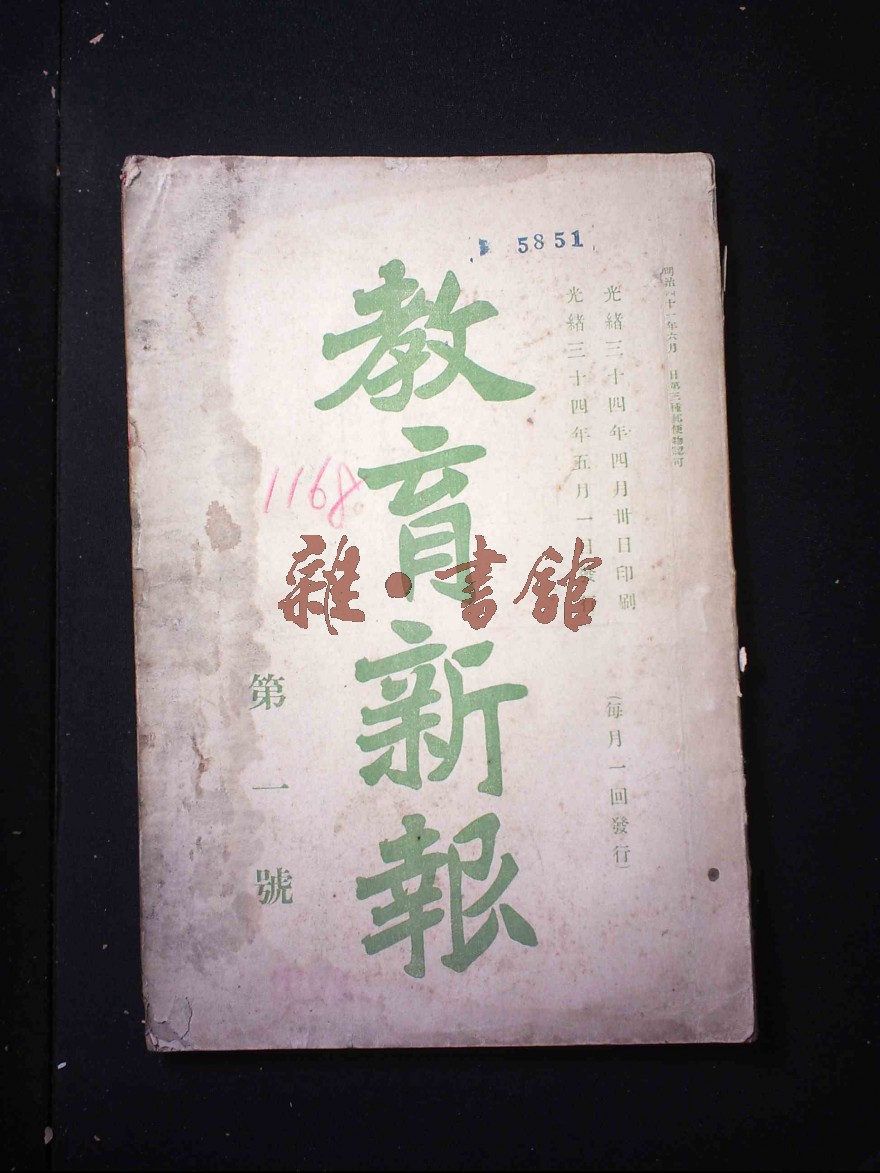 5851
明治四十一年六月 日第三種郵便物認可
光緒三十四年四月卅日印刷
光緒三十四年五月一日發行
(每月一回發行)
教育新報
1168
第一號
雜·書館